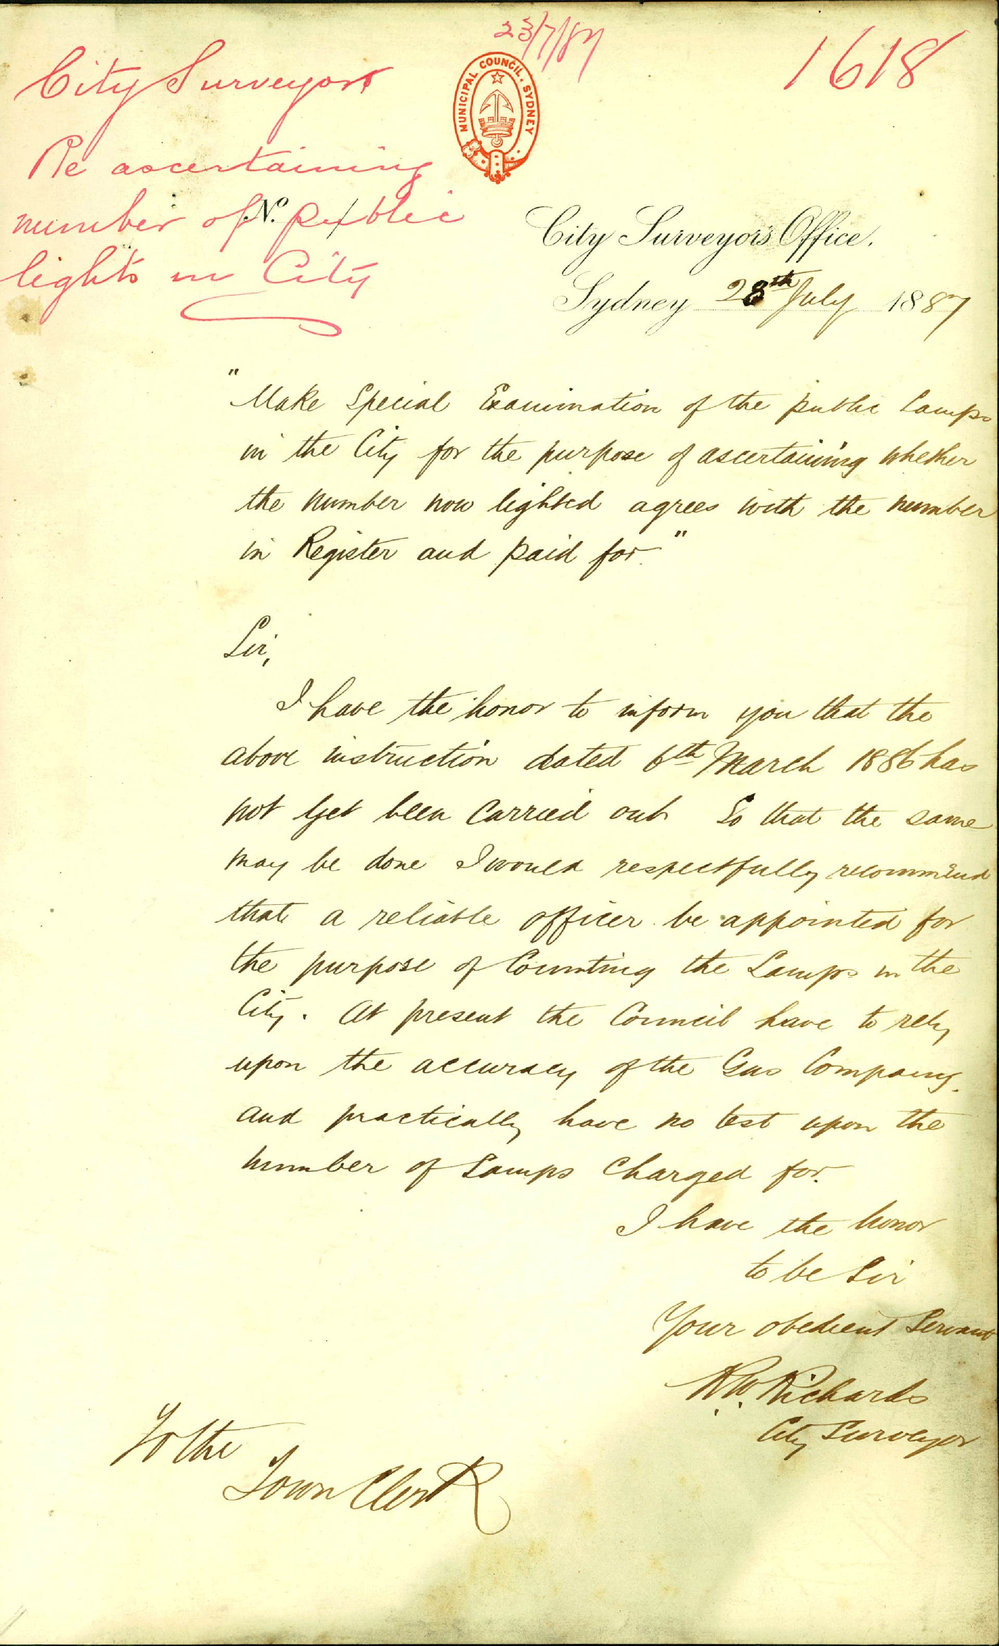 23/7/87
1618
City Surveyor
Re ascertaining
number of public
lights in City
MUNICIPAL COUNCIL. SYDNEY
No.
City Surveyor's Office.
Sydney 28th July 1887
"Make Special Examination of the public Lamps
in the City for the purpose of ascertaining whether
the number now lighted agrees with the number
in Register and paid for."
Sir,
I have the honor to inform you that the
above instruction dated 6th March 1886 has
not yet been carried out So that the same
may be done I would respectfully recommend
that a reliable officer be appointed for
the purpose of Counting the Lamps in the
City. At present the Council have to rely
upon the accuracy of the Gas Company.
and practically have no test upon the
number of Lamps Charged for.
I have the honor
to be Sir
Your obedient Servant
R.W. Richards
City Surveyor
To the
Town Clerk